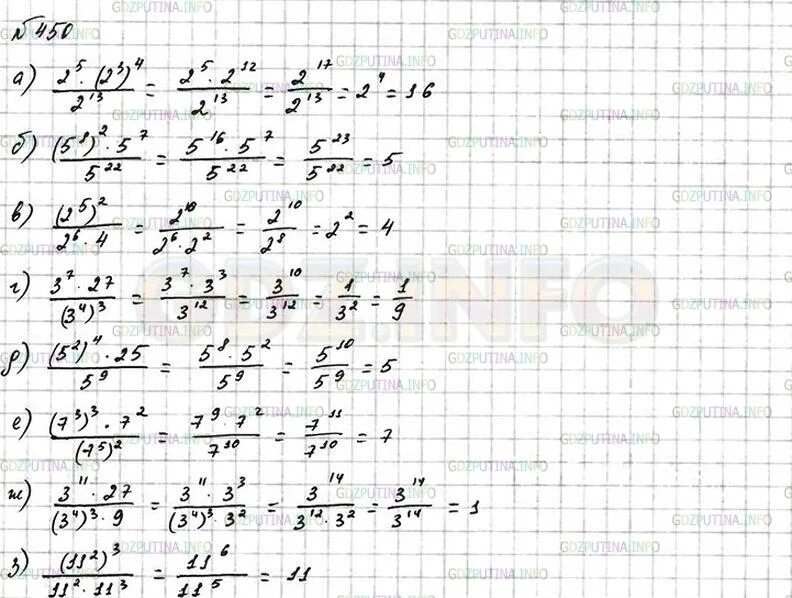 №450
а) (2^5 · (2^3)^4)/2^13 = (2^5 · 2^12)/2^13 = 2^17/2^13 = 2^4 = 16
б) ((5^8)^2 · 5^7)/5^22 = (5^16 · 5^7)/5^22 = 5^23/5^22 = 5
в) (2^5)^2/(2^6 · 4) = 2^10/(2^6 · 2^2) = 2^10/2^8 = 2^2 = 4
г) (3^7 · 27)/(3^4)^3 = (3^7 · 3^3)/3^12 = 3^10/3^12 = 1/3^2 = 1/9
д) ((5^2)^4 · 25)/5^9 = (5^8 · 5^2)/5^9 = 5^10/5^9 = 5
е) ((7^3)^3 · 7^2)/(7^5)^2 = (7^9 · 7^2)/7^10 = 7^11/7^10 = 7
ж) (3^11 · 27)/((3^4)^3 · 9) = (3^11 · 3^3)/((3^4)^3 · 3^2) = 3^14/(3^12 · 3^2) = 3^14/3^14 = 1
з) (11^2)^3/(11^2 · 11^3) = 11^6/11^5 = 11
GDZ.INFO
GDZPUTINA.INFO